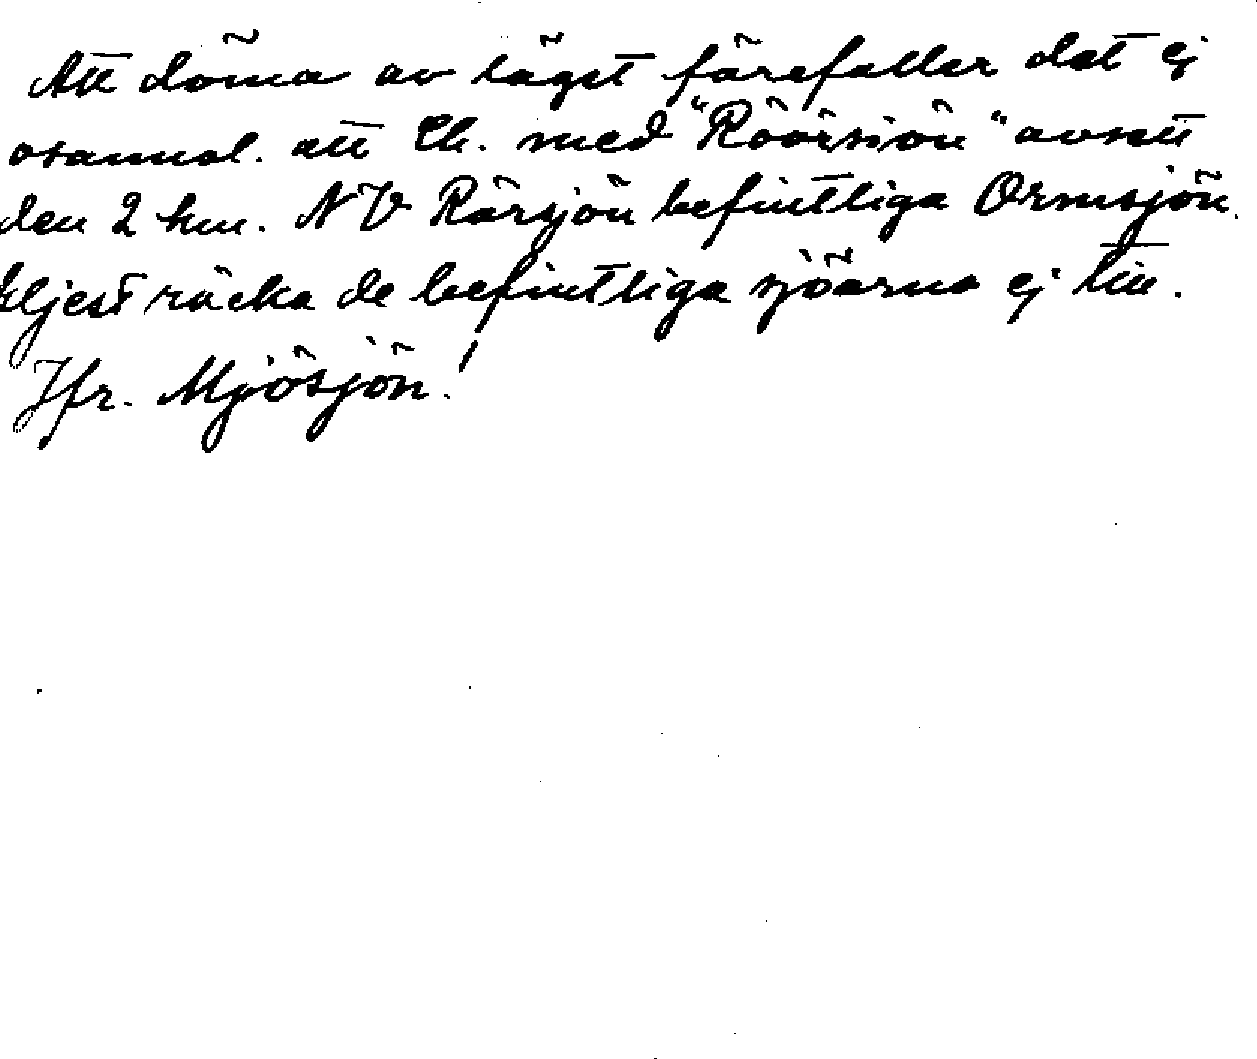 Att döma av läget förefaller det ej
osannol. att Ch. med "Röörsiön" avsett
den 2 km. NV Rörsjön befintliga Ormsjön.
Eljest räcka de befintliga sjöarna ej till.
Jfr. Mjösjön!